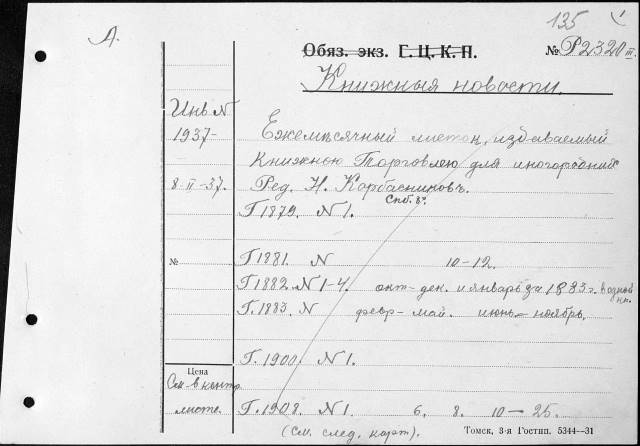 135
А.
Обяз. экз. Г.Ц.К.П. № Р2320 III.
Книжныя новости.
Инв N
1937-
8-II-37.
Ежемѣсячный листок, издаваемый
Книжною Торговлею для иногородних
Ред. Н. Карбасниковъ.
Спб. 8°.
Г 1879. N 1.
№
Г 1881. N 10-12.
Г 1882. N 1-4. окт-дек. и январь за 1883 г. в одной кн.
Г. 1883. N февр-май. июнь-ноябрь.
Г. 1900. N 1.
Цена
См. в контр.
листе.
Г. 1908. N 1. 6. 8. 10-25.
(См. след. карт).
Томск, 3-я Гостип. 5344—31